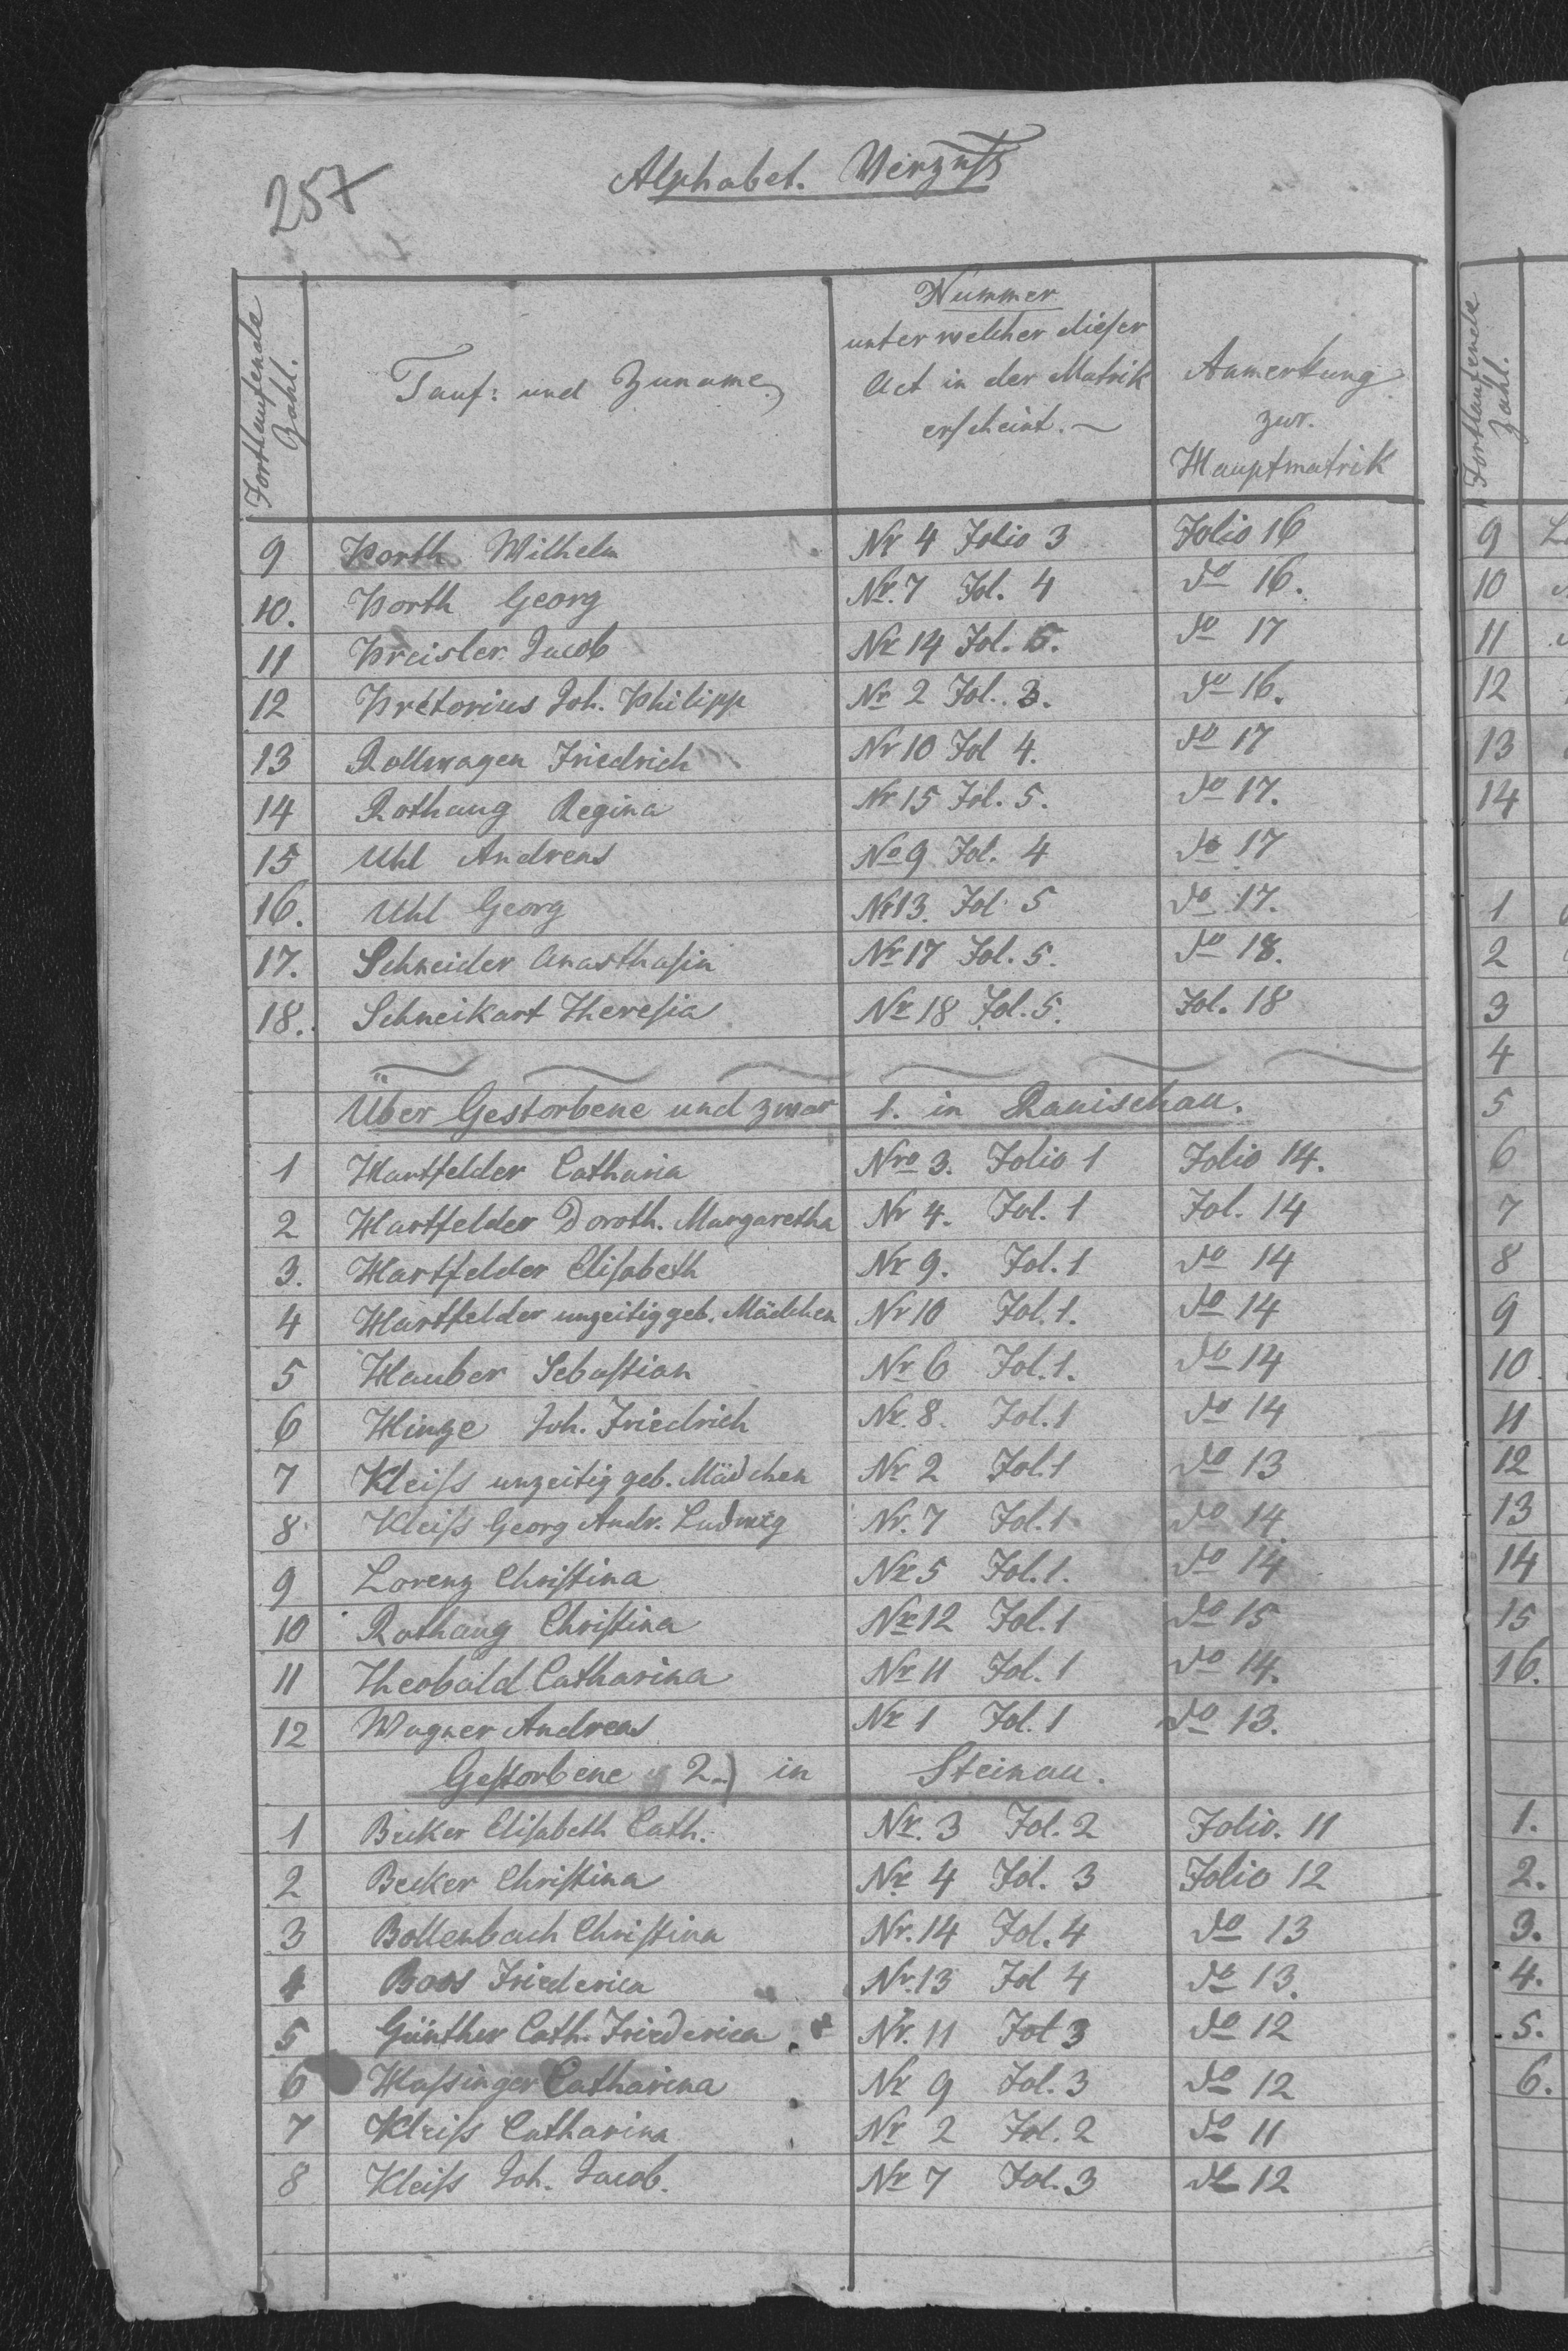 257
Alphabet. Verznß
Fortlaufende Zahl.
Tauf: und Zuname
Nummer
unter welcher dieser
Act in der Matrik
erscheint.
Anmerkung
zur
Hauptmatrik
9 Porth Wilhelm Nr 4 Folio 3 Folio 16
10. Porth Georg Nr. 7 Fol. 4 do 16.
11 Preisler Jacob Nr 14 Fol. 5. do 17
12 Pretorius Joh. Philipp Nr 2 Fol. 3. do 16.
13 Rollwagen Friedrich Nr 10 Fol 4. do 17
14 Rothaug Regina Nr 15 Fol. 5. do 17.
15 Uhl Andreas No 9 Fol. 4 do 17
16. Uhl Georg Nr 13. Fol 5 do 17.
17. Schneider Anasthasia Nr 17 Fol. 5. do 18.
18. Schneikart Theresia Nr 18 Fol. 5. Fol. 18
Über Gestorbene und zwar 1. in Ranischau.
1 Hartfelder Catharia Nro 3. Folio 1 Folio 14.
2 Hartfelder Doroth. Margaretha Nr 4. Fol. 1 Fol. 14
3. Hartfelder Elisabeth Nr 9. Fol. 1 do 14
4 Hartfelder unzeitig geb. Mädchen Nr 10 Fol. 1. do 14
5 Hauber Sebastian Nr 6 Fol. 1. do 14
6 Hinze Joh. Friedrich Nr. 8. Fol. 1 do 14
7 Kleiss unzeitig geb. Mädchen Nr 2 Fol. 1 do 13
8 Kleiss Georg Andr. Ludwig Nr. 7 Fol. 1 do 14
9 Lorenz Christina Nr 5 Fol. 1. do 14
10 Rothaug Christina Nr 12 Fol. 1 do 15
11 Theobald Catharina Nr 11 Fol. 1 do 14.
12 Wagner Andreas Nr 1 Fol. 1 do 13.
Gestorbene 2.) in Steinau.
1 Becker Elisabeth Cath. Nr. 3 Fol. 2 Folio. 11
2 Becker Christina Nr 4 Fol. 3 Folio 12
3 Bollenbach Christina Nr. 14 Fol. 4 do 13
4 Boos Friederica Nr. 13 Fol 4 do 13.
5 Günther Cath. Friederica Nr. 11 Fol 3 do 12
6 Hassinger Catharina Nr 9 Fol. 3 do 12
7 Kleiss Catharina Nr 2 Fol. 2 do 11
8 Kleiss Joh. Jacob. Nr 7 Fol. 3 do 12
Fortlaufende Zahl.
9
10
11
12
13
14
1
2
3
4
5
6
7
8
9
10
11
12
13
14
15
16.
1.
2.
3.
4.
5.
6.